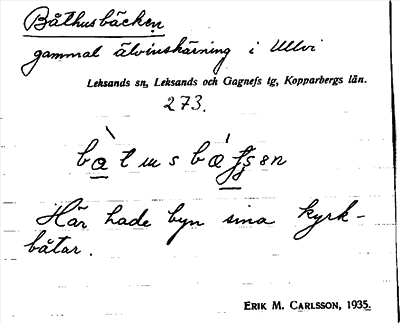 Båthusbäcken
gammal älvinskärning i Ullvi
Leksands sn, Leksands och Gagnefs tg, Kopparbergs län.
273.
Här hade byn sina kyrk-
båtar.
ERIK M. CARLSSON, 1935.